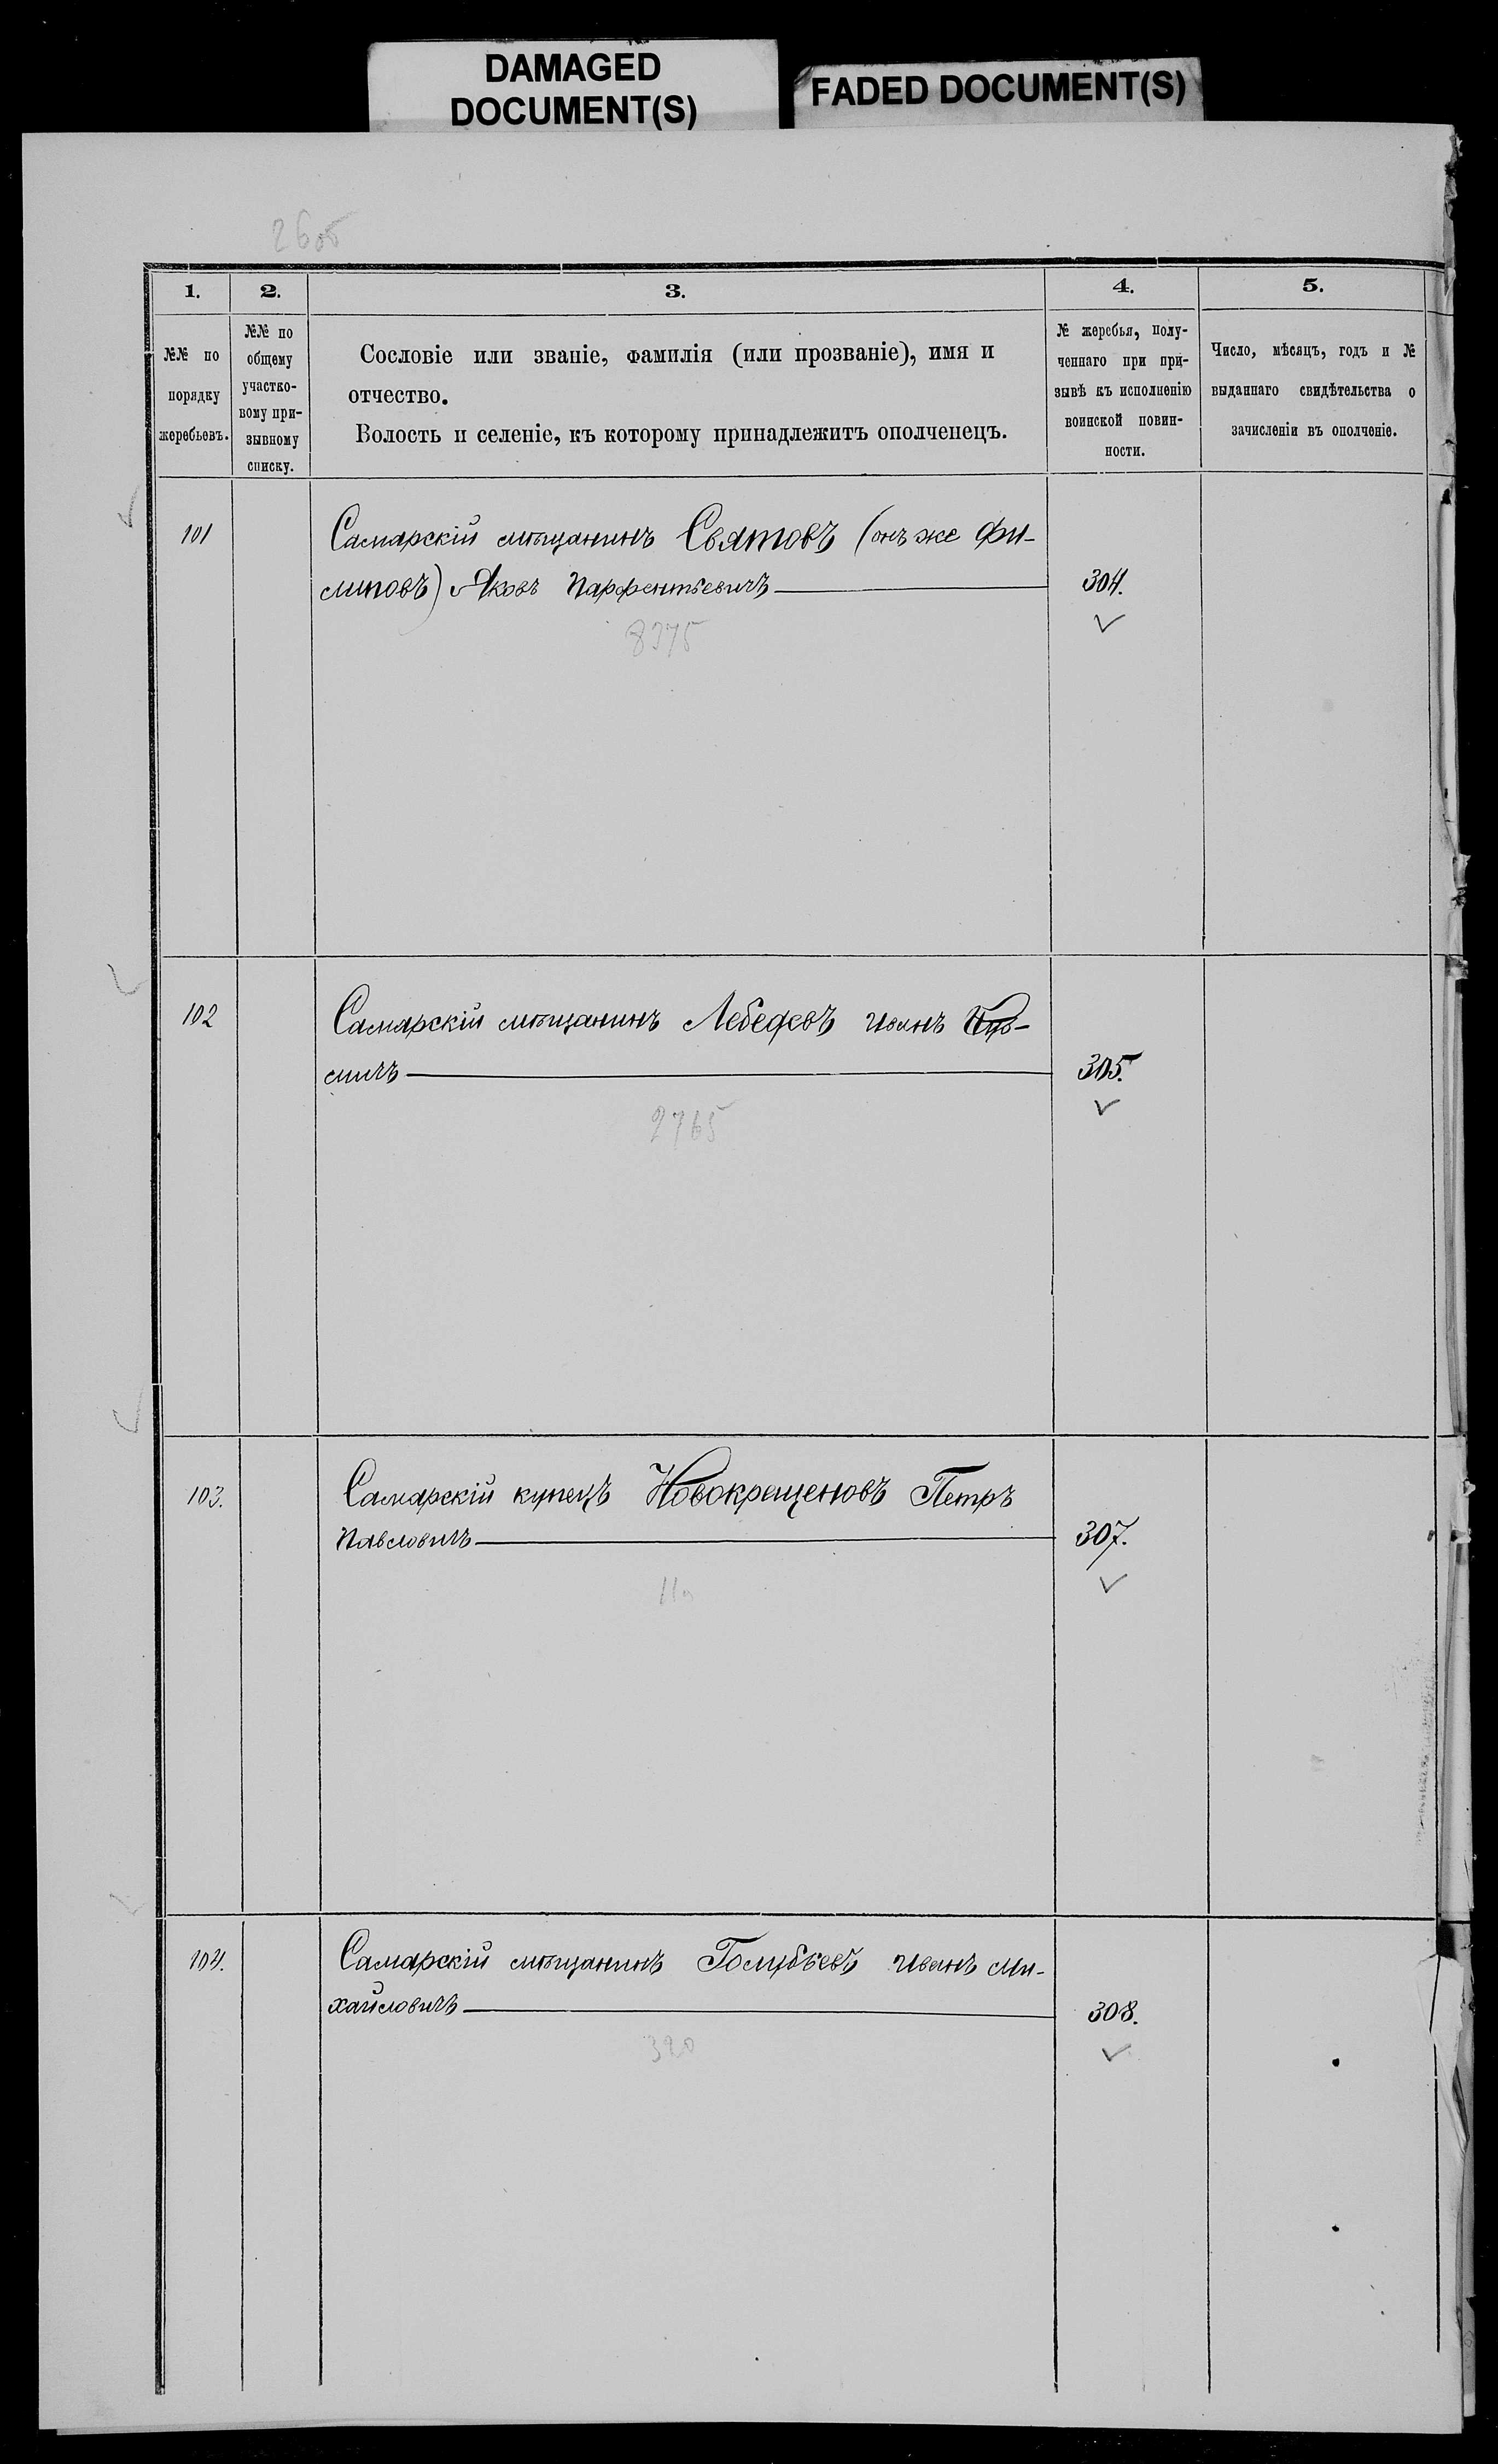 DAMAGED
DOCUMENT(S)
FADED DOCUMENT(S)
1.
2.
3.
4.
5.
№№ по
порядку
жеребьевъ.
№№ по
общему
участко-
вому при-
зывному
списку.
Сословіе или званіе, фамилія (или прозваніе), имя и
отчество.
Волость и селеніе, къ которому принадлежитъ ополченецъ.
№ жеребья, полу-
ченнаго при при-
зывѣ къ исполненію
воинской повин-
ности.
Число, мѣсяцъ, годъ и №
выданнаго свидѣтельства о
зачисленіи въ ополченіе.
101
Самарскій мѣщанинъ Святовъ (онъ же Фи-
липовъ) Яковъ Парфентьевичъ
304.
8375
102
Самарскій мѣщанинъ Лебедевъ Иванъ
мичъ
305.
2765
103.
Самарскій купецъ Новокрещеновъ Петръ
Павловичъ
307.
104.
Самарскій мѣщанинъ Голубьевъ Иванъ Ми-
хайловичъ
308.
320